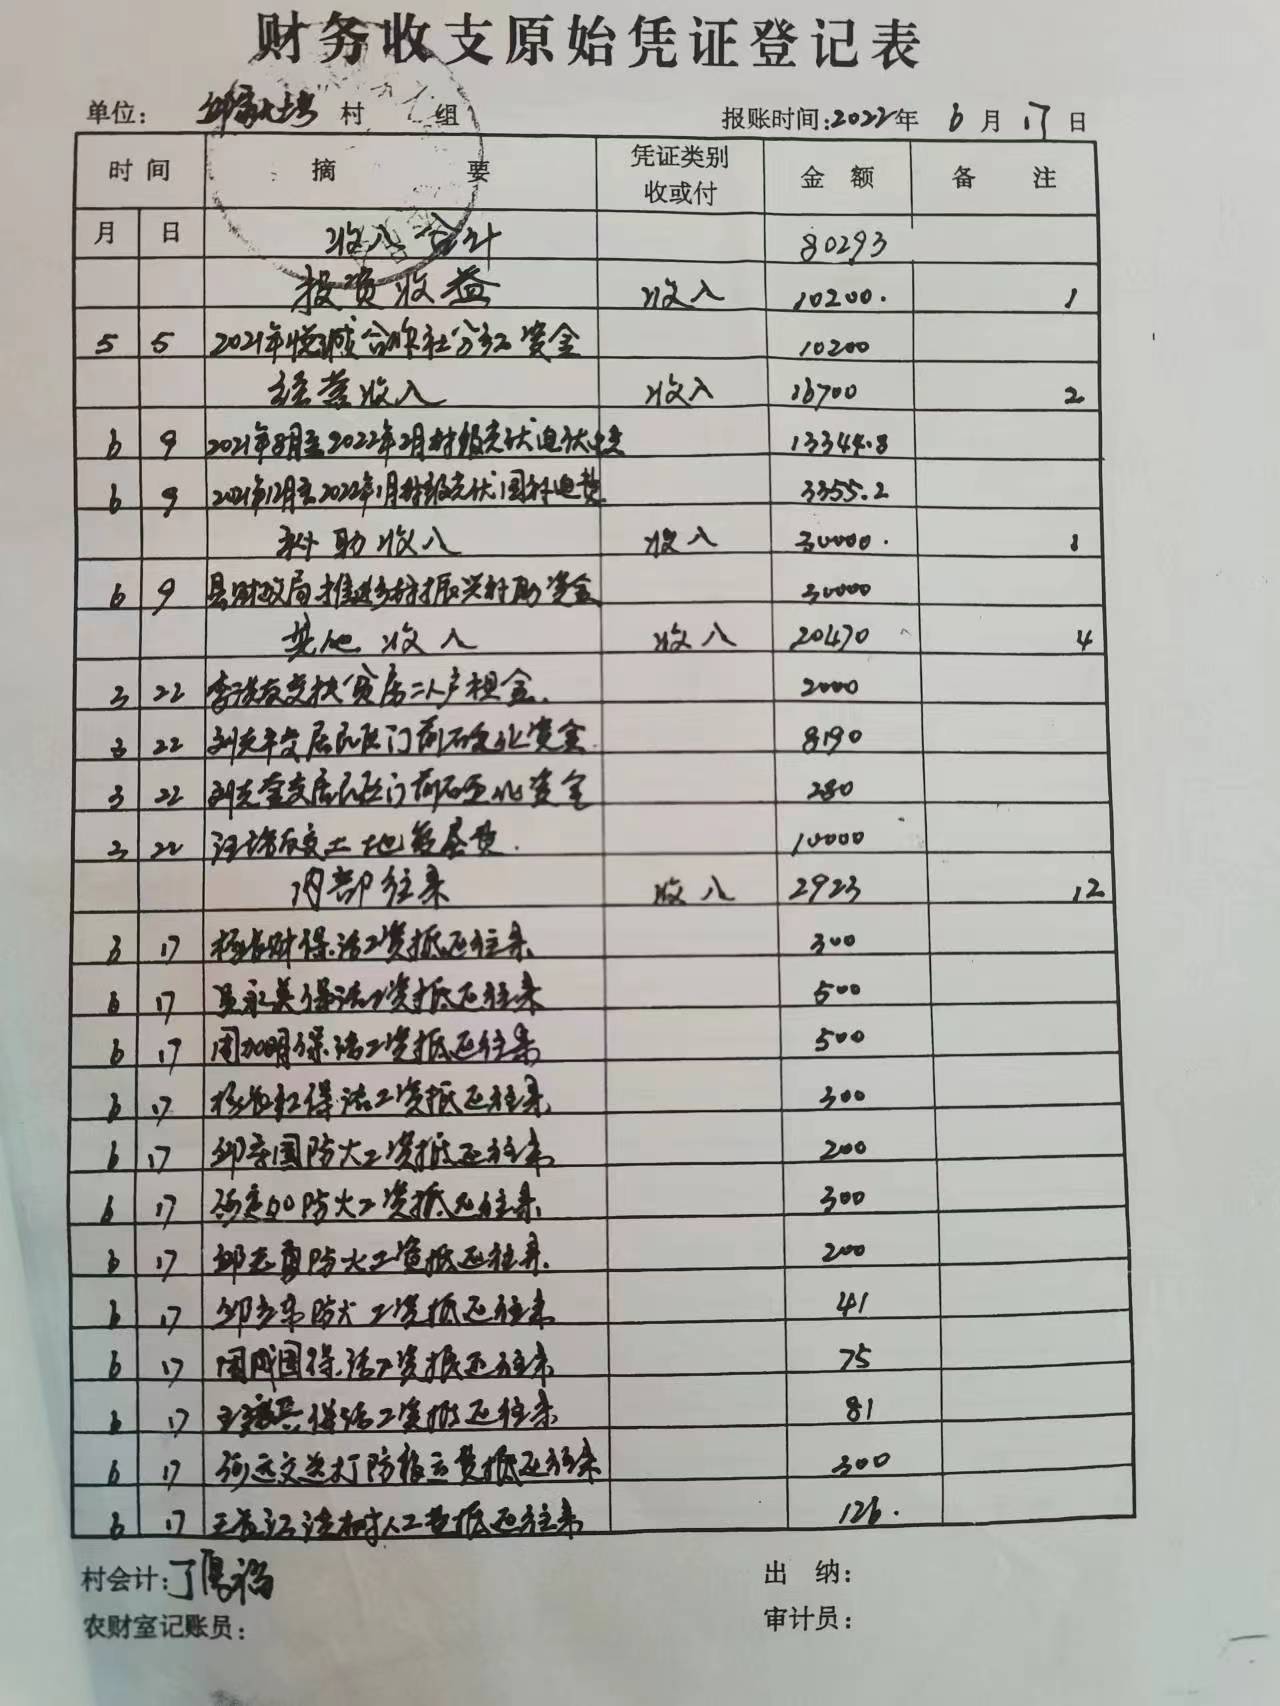 财务收支原始凭证登记表
单位: 村 组 报账时间:2022年 6 月 17 日
时 间 摘 要 凭证类别 收或付 金 额 备 注
月 日 收入合计 80293
投资收益 收入 10200. 1
5 5 2021年悦诚合作社分红资金 10200
经营收入 收入 16700 2
6 9 2021年8月至2022年2月村级光伏电伏电费 13344.8
6 9 2021年12月至2022年1月村级光伏国补电费 3355.2
补助收入 收入 30000. 1
6 9 县财政局推进乡村振兴补助资金 30000
其他收入 收入 20470 4
3 22 交扶贫房二人户租金. 2000
3 22 刘克平交居民区门前石硬化资金 8190
3 22 刘克金交居民区门前石硬化资金 280
3 22 汪 友交土地 费. 10000
内部往来 收入 2923 12
6 17 杨 财保洁工资抵还往来 300
6 17 吴永英保洁工资抵还往来 500
6 17 周加明保洁工资抵还往来 500
6 17 杨 红保洁工资抵还往来 300
6 17 邹 国防火工资抵还往来 200
6 17 防火工资抵还往来 300
6 17 邹志勇防火工资抵还往来. 200
6 17 邹 防火工资抵还往来 41
6 17 周成国保洁工资抵还往来 75
6 17 王 兴保洁工资抵还往来 81
6 17 文 防 费抵还往来 300
6 17 王 江 树人工费抵还往来 126.
村会计:丁厚福 出 纳:
农财室记账员: 审计员: